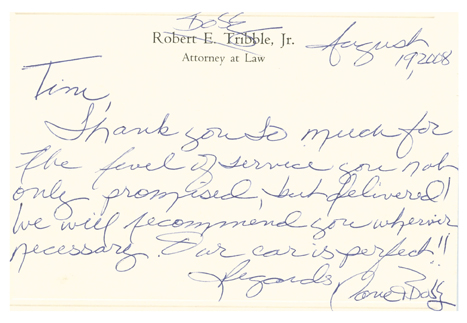 Bobby
Robert E. Tribble, Jr.
Attorney at Law
August
19, 2008
Tim,
Thank you so much for
the level of service you not
only promised, but delivered!
We will recommend you wherever
necessary. Our car is perfect!!
Regards,
& Bobby